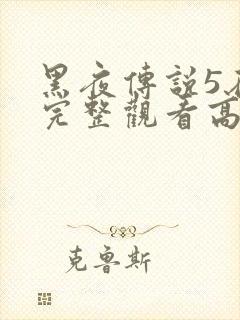 黑夜傳說5在
完整觀看高
克魯斯